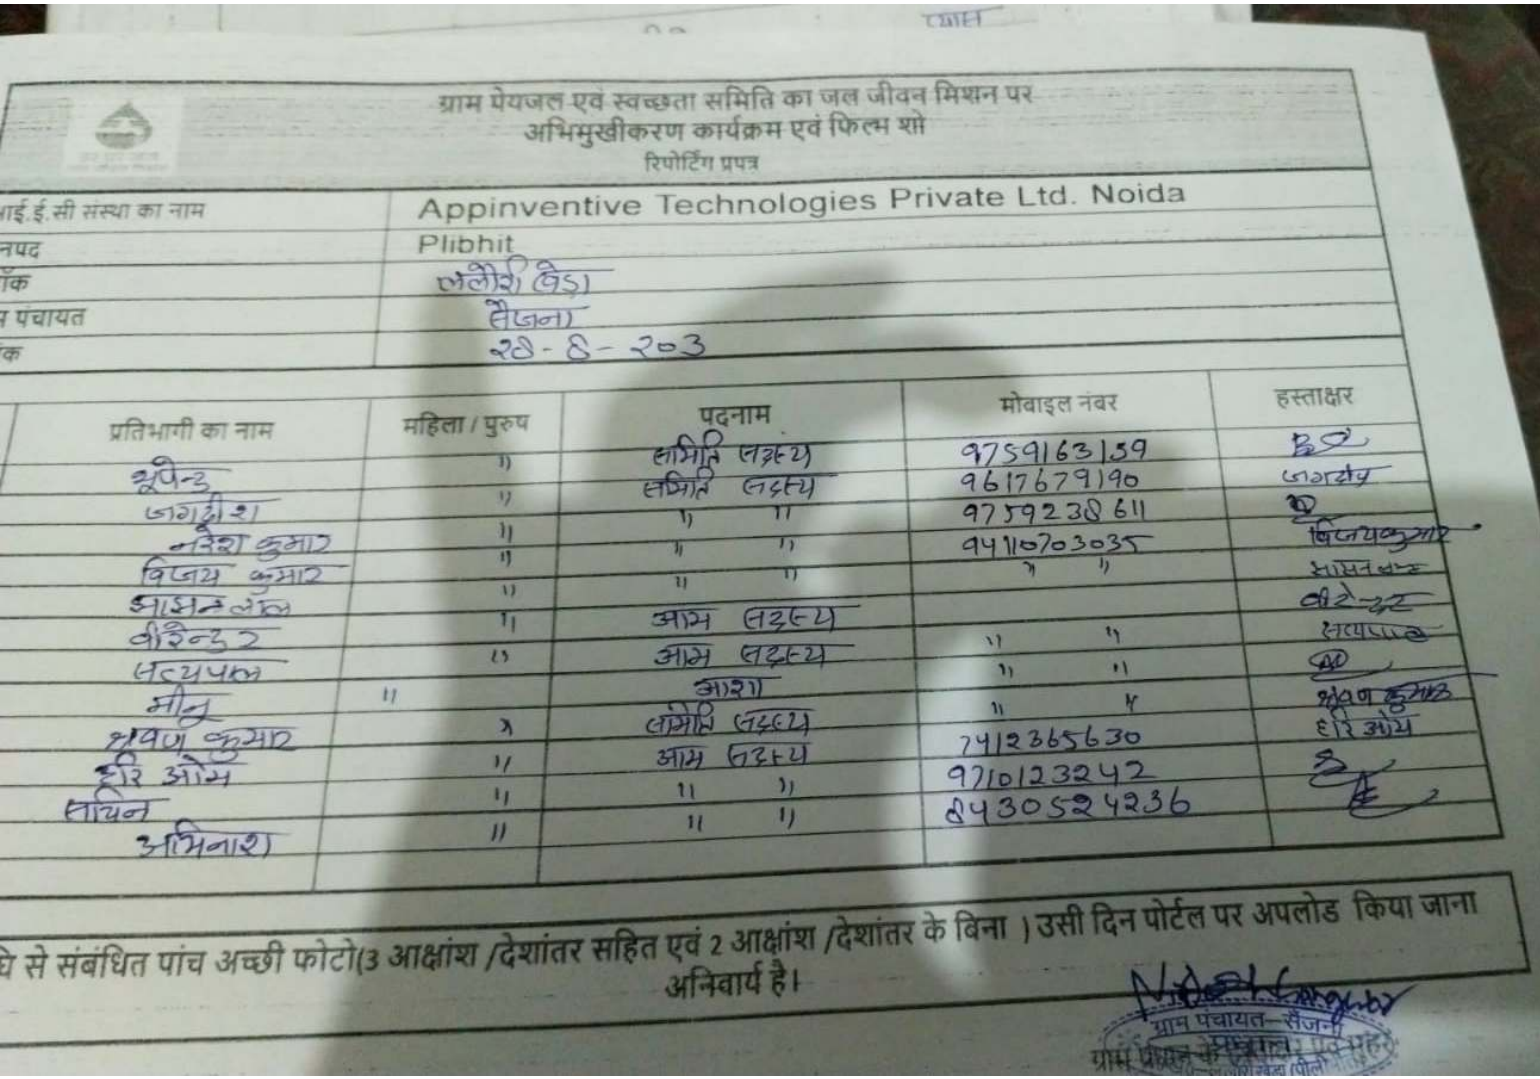 ग्राम पेयजल एवं स्वच्छता समिति का जल जीवन मिशन पर
अभिमुखीकरण कार्यक्रम एवं फिल्म शो
रिपोर्टिंग प्रपत्र
आई.ई.सी संस्था का नाम Appinventive Technologies Private Ltd. Noida
नपद Plibhit
ॉक ललौरी खेड़ा
म पंचायत सैजना
क २८-8-२०३
प्रतिभागी का नाम महिला / पुरुष पदनाम मोबाइल नंबर हस्ताक्षर
भूपेन्द्र " समिति सदस्य 9759163159
जगदीश " समिति सदस्य 9617679190 जगदीश
नरेश कुमार " " " 9759238611
विजय कुमार " " " 94110703035 विजयकुमार
आसन लाल " " " " "
वीरेन्दर " आम सदस्य वीरेन्दर
सत्यपाल " आम सदस्य " " सत्यपाल
मीनू " आशा " "
श्रवण कुमार " समिति सदस्य " " श्रवण कुमार
हरि ओम " आम सदस्य 7412365630 हरि ओम
सचिन " " " 9710123242
अभिनाश " " " 8430524236
से संबंधित पांच अच्छी फोटो(3 आक्षांश /देशांतर सहित एवं 2 आक्षांश /देशांतर के विना ) उसी दिन पोर्टल पर अपलोड किया जाना
अनिवार्य है।
ग्राम पंचायत-सैजना